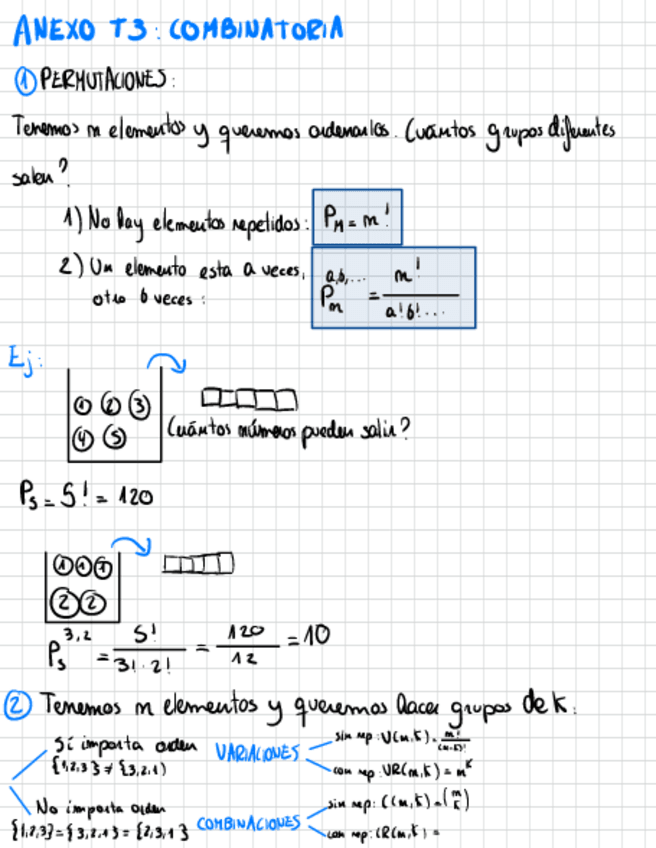 ANEXO T3: COMBINATORIA
① PERMUTACIONES:
Tenemos m elementos y queremos ordenarlos. Cuántos grupos diferentes
salen?
1) No hay elementos repetidos: Pₘ = m!
2) Un elemento esta a veces, Pₘ^{a,b,...} = m! / a!b!...
otro b veces:
Ej:
① ② ③
④ ⑤
Cuántos números pueden salir?
P₅ = 5! = 120
① ① ①
② ②
P₅^{3,2} = 5! / 3!·2! = 120 / 12 = 10
② Tenemos m elementos y queremos hacer grupos de k:
Sí importa orden
{1,2,3} ≠ {3,2,1}
VARIACIONES
sin rep: V(m,k) = m! / (m-k)!
con rep: VR(m,k) = m^k
No importa orden
{1,2,3} = {3,2,1} = {2,3,1}
COMBINACIONES
sin rep: C(m,k) = (m k)
con rep: CR(m,k) =